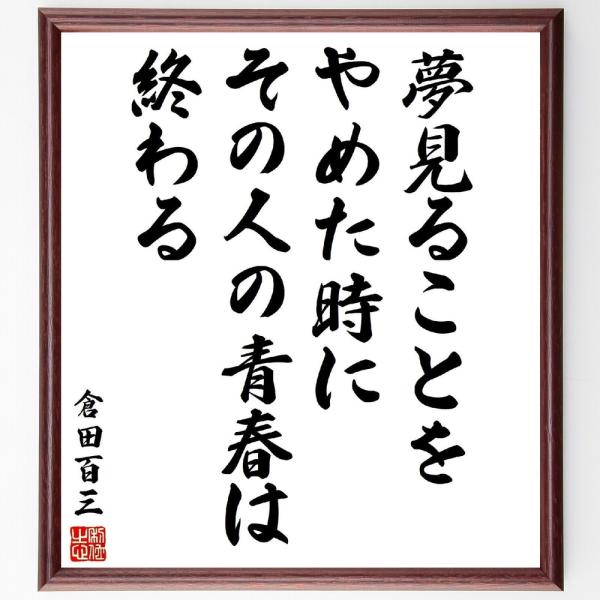 夢見ることを
やめた時に
その人の青春は
終わる
倉田百三